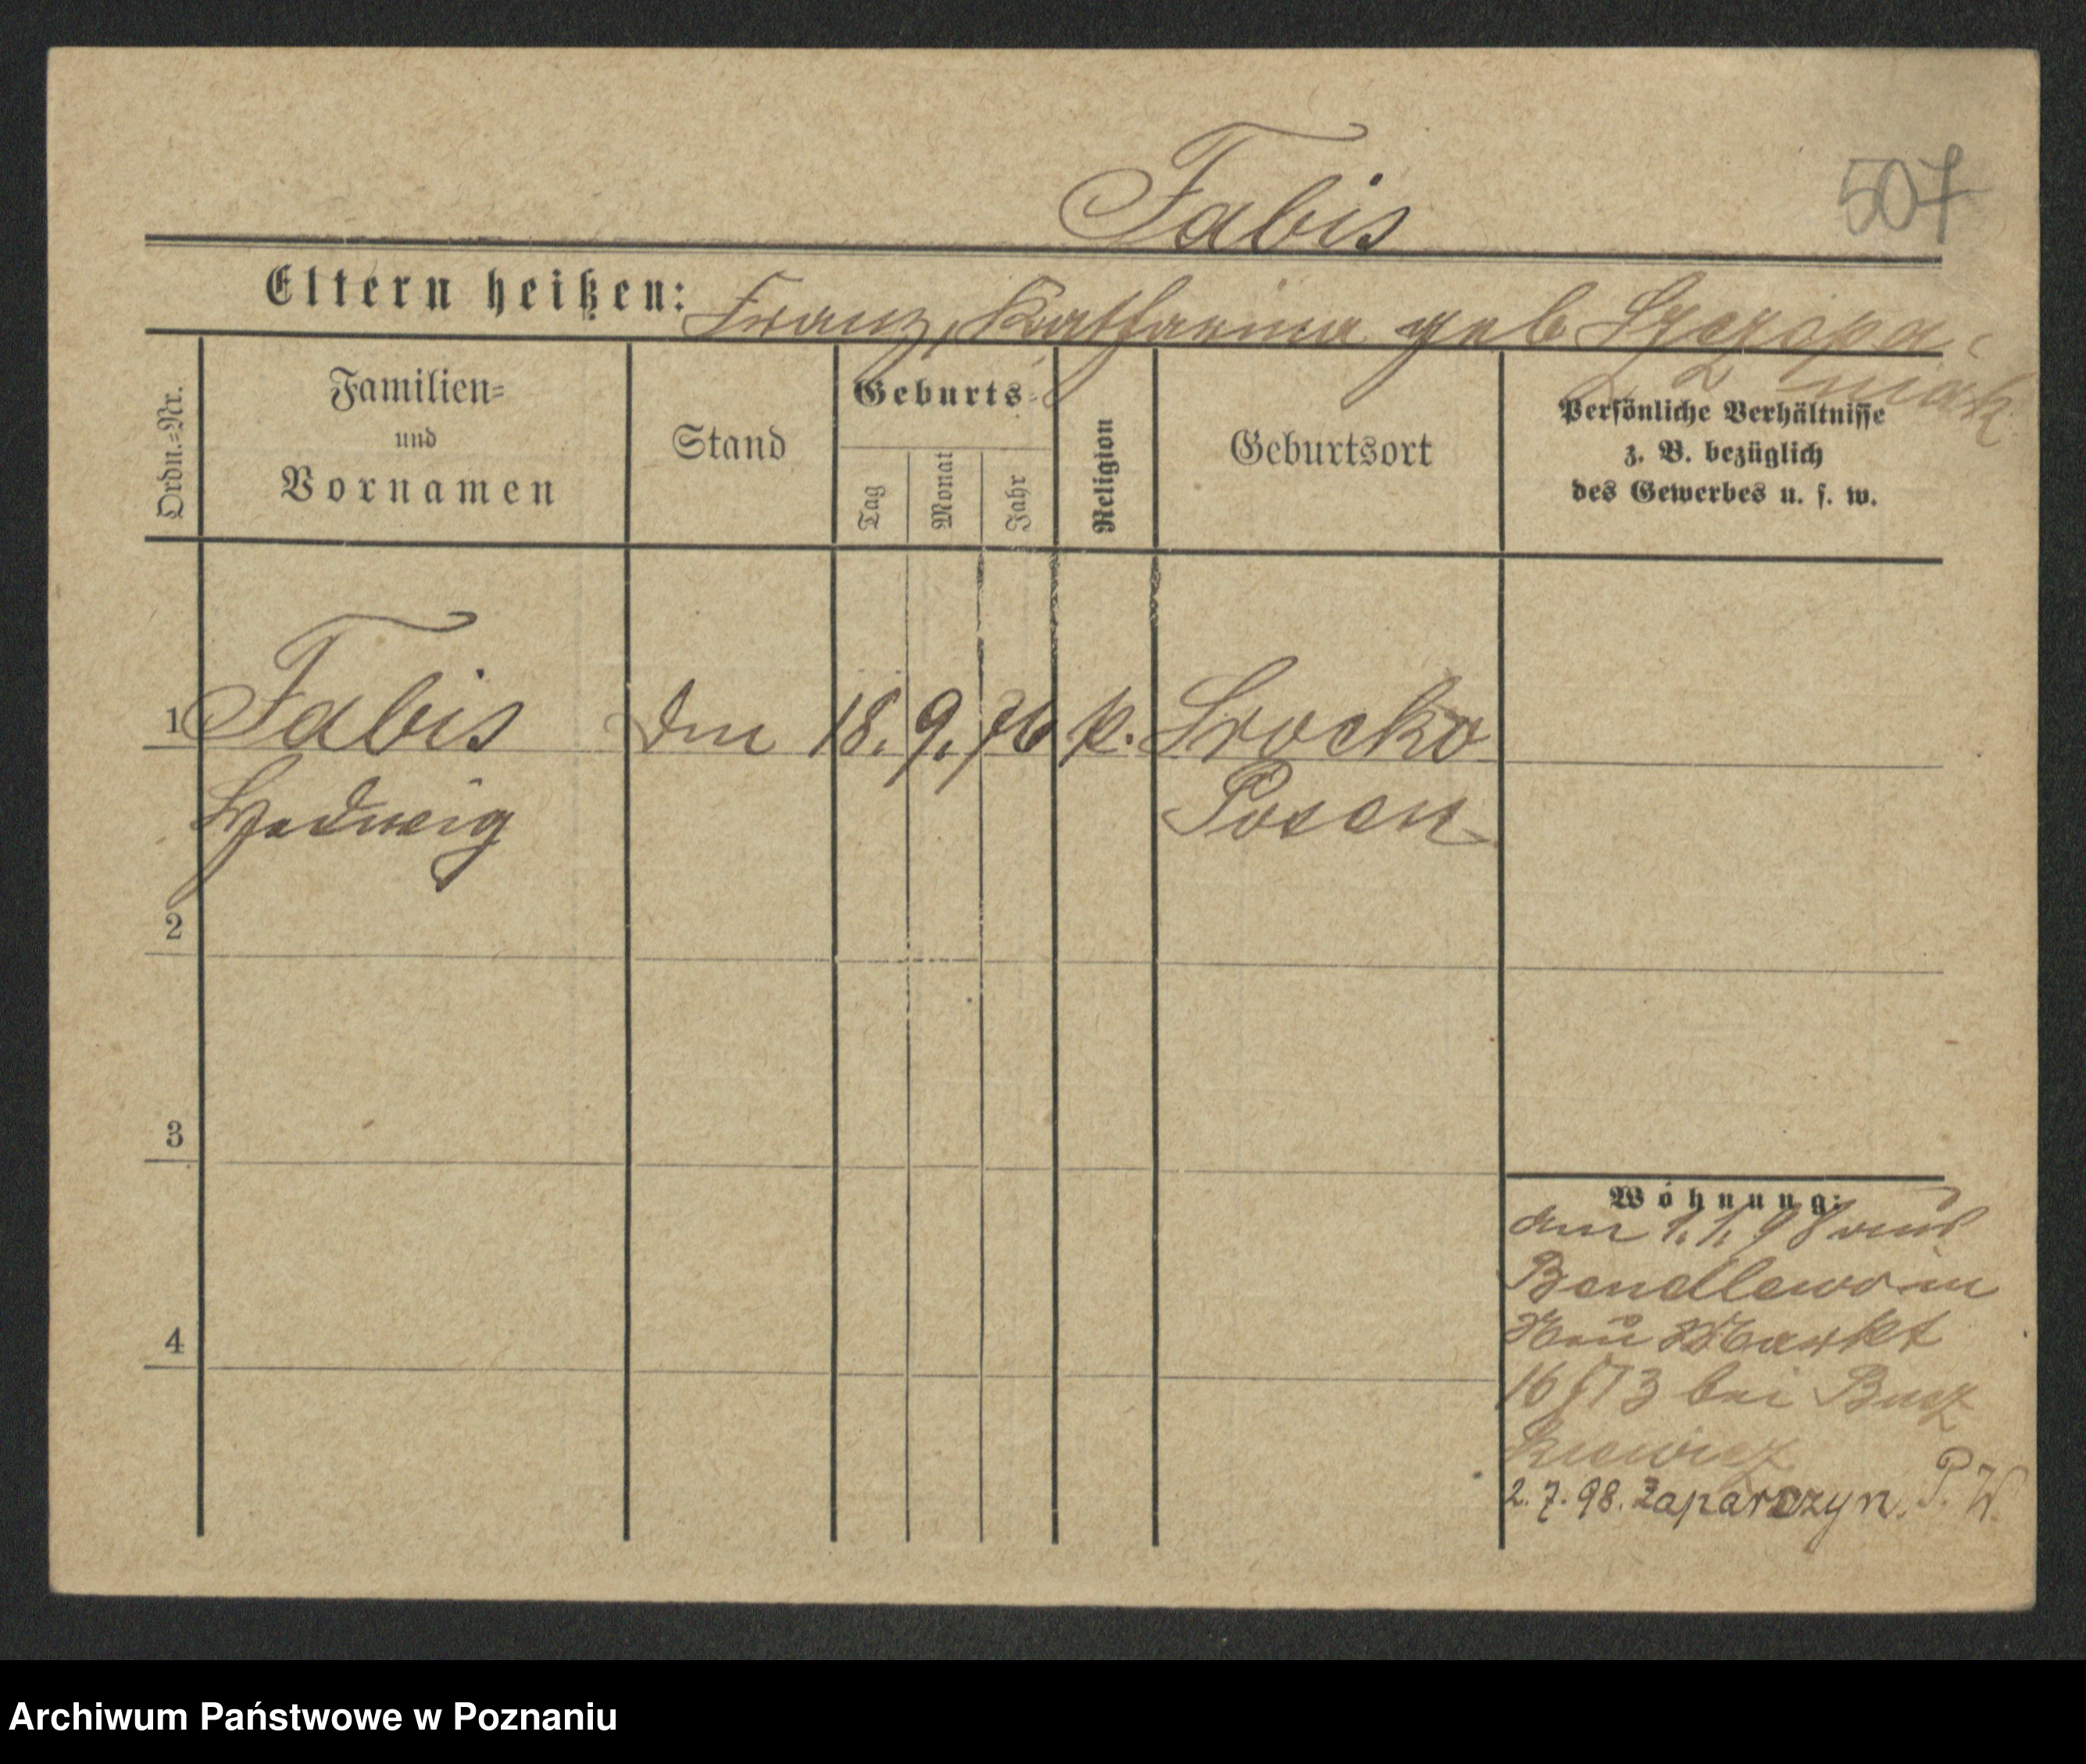 507
Fabis
Eltern heißen: Franz, Katharina geb Szczepa-
niak
Ordn.=Nr.
Familien=
und
Vornamen
Stand
Geburts-
Tag
Monat
Jahr
Religion
Geburtsort
Persönliche Verhältnisse
z. B. bezüglich
des Gewerbes u. s. w.
1 Fabis 18. 9. 76 k. Srocko
Hedwig Posen
2
3
4
Wohnung:
am 1.1.98 aus
Bendlewo in
Neü Markt
16 bei Busz
kiewicz
2.7.98. Zaparczyn. P. W.
Archiwum Państwowe w Poznaniu